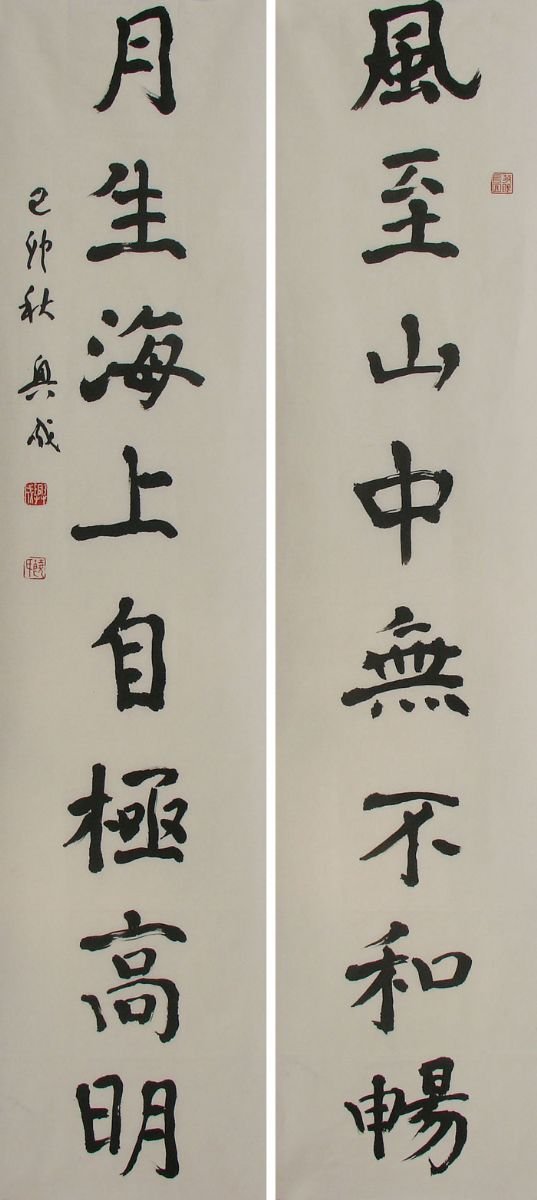 風至山中無不和暢
月生海上自極高明
己卯秋興成